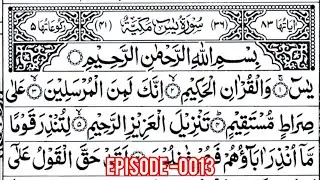 اٰیَاتُهَا ۸۳ (۳۶) سُوْرَةُ یٰسٓ مَكِّیَّةٌ (۴۱) رُكُوْعَاتُهَا ۵
بِسْمِ اللّٰهِ الرَّحْمٰنِ الرَّحِیْمِ
یٰسٓ ۱ وَالْقُرْاٰنِ الْحَكِیْمِ ۲ اِنَّكَ لَمِنَ الْمُرْسَلِیْنَ ۳ عَلٰی
صِرَاطٍ مُّسْتَقِیْمٍ ۴ تَنْزِیْلَ الْعَزِیْزِ الرَّحِیْمِ ۵ لِتُنْذِرَ قَوْمًا
مَّاۤ اُنْذِرَ اٰبَآؤُهُمْ فَهُمْ غٰفِلُوْنَ ۶ لَقَدْ حَقَّ الْقَوْلُ عَلٰۤی
EPISODE-0013